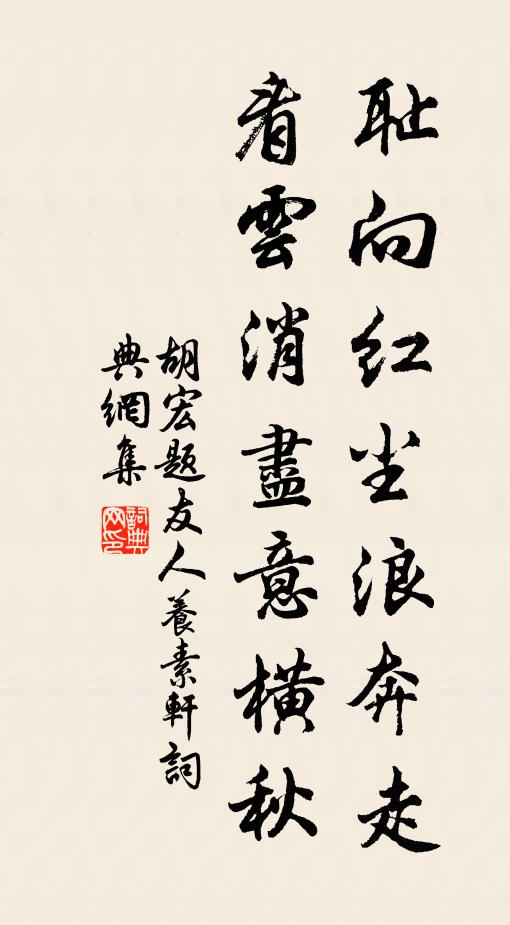 耻向红尘浪奔走
看雲消盡意橫秋
胡宏题友人養素軒詞
典網集
詞典網印